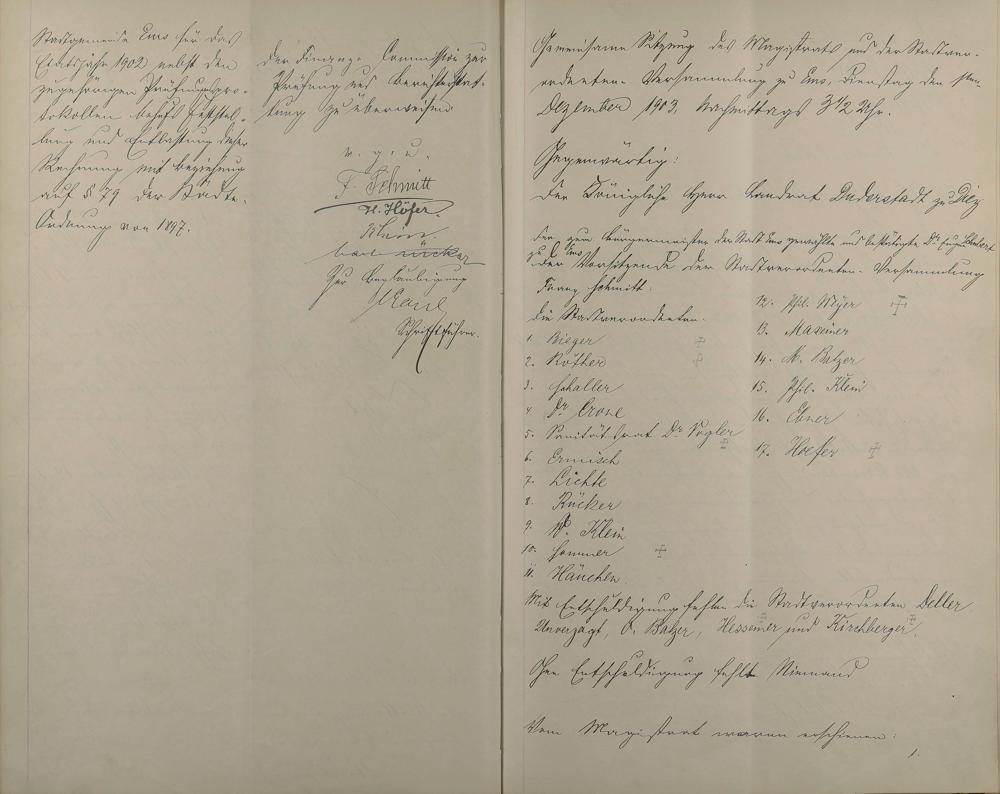 Stadtgemeinde Ems für das
Etatsjahr 1902 nebst den
zugehörigen Prüfungspro-
tokollen behufs Feststel-
lung und Entlastung dieser
Rechnung mit Beziehung
auf § 79 der Städte-
Ordnung von 1897.
Der Finanz-Commission zur
Prüfung und Berichterstat-
tung zu überweisen
v. g. u.
F. Schmitt
H. Höfer.
Klein
Rücker
Zur Beglaubigung
Schriftführer.
Gemeinsame Sitzung des Magistrats und der Stadtver-
ordneten-Versammlung zu Ems, Dienstag den
Dezember 1903, Nachmittags 3 1/2 Uhr.
Gegenwärtig:
Der Königliche Herr Landrat Duderstadt zu Diez
Der zum Bürgermeister der Stadt Ems gewählte und bestätigte Dr.
zu Ems
Der Vorsitzende der Stadtverordneten-Versammlung
Franz Schmitt.
Die Stadtverordneten.
1. Bieger
2. Röther
3. Schaller
4. Dr. Crone
5. Sanitätsrat Dr. Vogler
6. Ermisch
7. Lichte
8. Rücker
9. W. Klein
10. Sommer
11. Hänchen
12. Phil. Meyer
13. Maxeiner
14. M. Balzer
15. Phil. Klein
16. Ebner
17. Hoefer
Mit Entschuldigung fehlen die Stadtverordneten Deller
Unverzagt, O. Balzer, Hessemer und Kirchberger.
Ohne Entschuldigung fehlt Niemand
Vom Magistrat waren erschienen:
1.